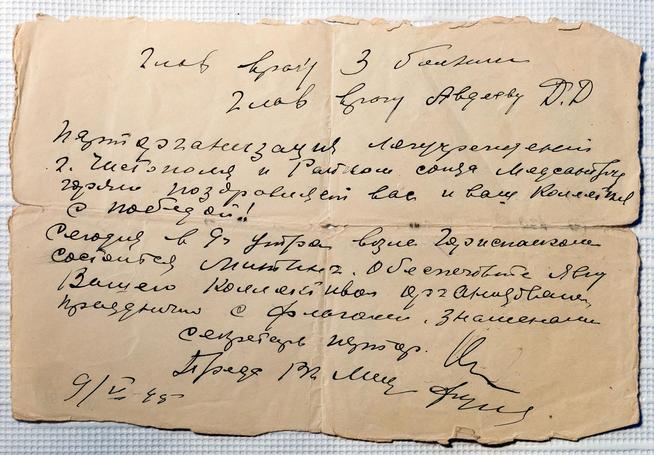 Глав врачу 3 больниц
Глав врачу Авдееву Д.Д
Парторганизация лечучреждений
г. Чистополя и Райком союза Медсантруд
горячо поздравляет вас и ваш коллектив
с победой!!
Сегодня в 9 утра возле Горисполкома
состоится митинг. Обеспечьте явку
Вашего коллектива организованно,
празднично с флагами, знаменами
Секретарь партор.
Пред
9/V-45